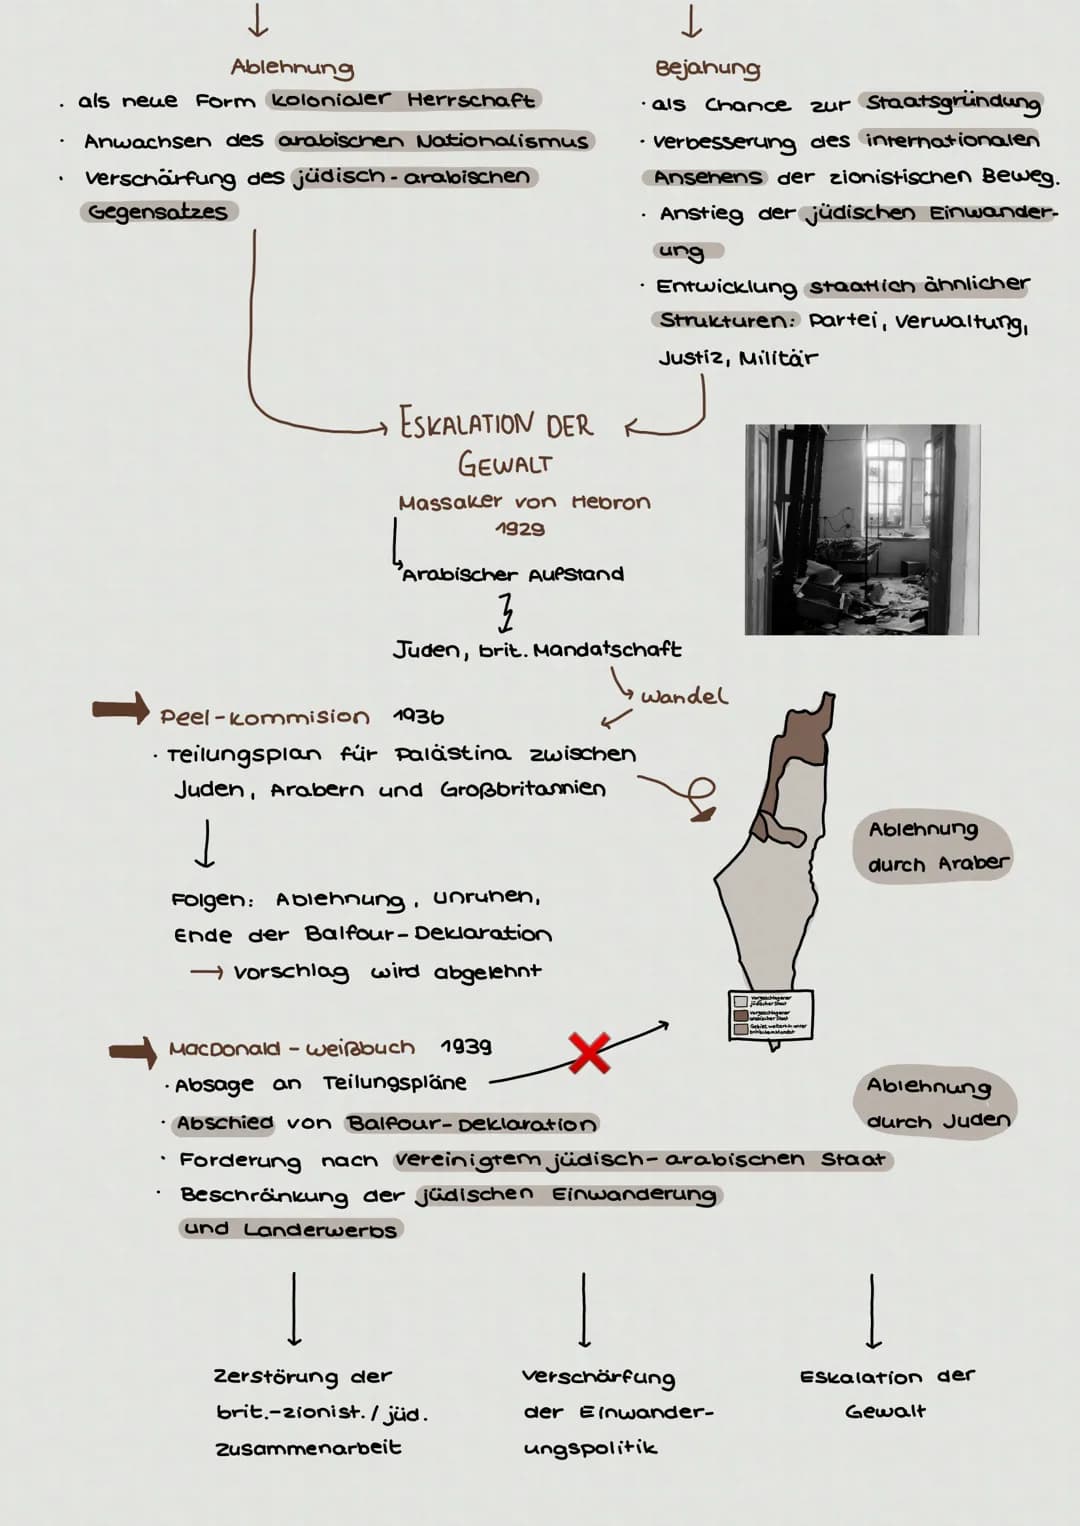 Ablehnung
· als neue Form kolonialer Herrschaft
· Anwachsen des arabischen Nationalismus
· Verschärfung des jüdisch-arabischen
Gegensatzes
Bejahung
· als Chance zur Staatsgründung
· Verbesserung des internationalen
Ansehens der zionistischen Beweg.
· Anstieg der jüdischen Einwander-
ung
· Entwicklung staatlich ähnlicher
Strukturen: Partei, Verwaltung,
Justiz, Militär
ESKALATION DER
GEWALT
Massaker von Hebron
1929
Arabischer Aufstand
Juden, brit. Mandatschaft
Wandel
Peel-Kommision 1936
· Teilungsplan für Palästina zwischen
Juden, Arabern und Großbritannien
Ablehnung
durch Araber
Folgen: Ablehnung, Unruhen,
Ende der Balfour-Deklaration
→ Vorschlag wird abgelehnt
Vorgeschlagener
jüdischer Staat
Vorgeschlagener
arabischer Staat
Gebiet weiterhin unter
britischem Mandat
MacDonald-Weißbuch 1939
· Absage an Teilungspläne
· Abschied von Balfour-Deklaration
· Forderung nach vereinigtem jüdisch-arabischen Staat
· Beschränkung der jüdischen Einwanderung
und Landerwerbs
Ablehnung
durch Juden
Zerstörung der
brit.-zionist./jüd.
Zusammenarbeit
Verschärfung
der Einwander-
ungspolitik
Eskalation der
Gewalt